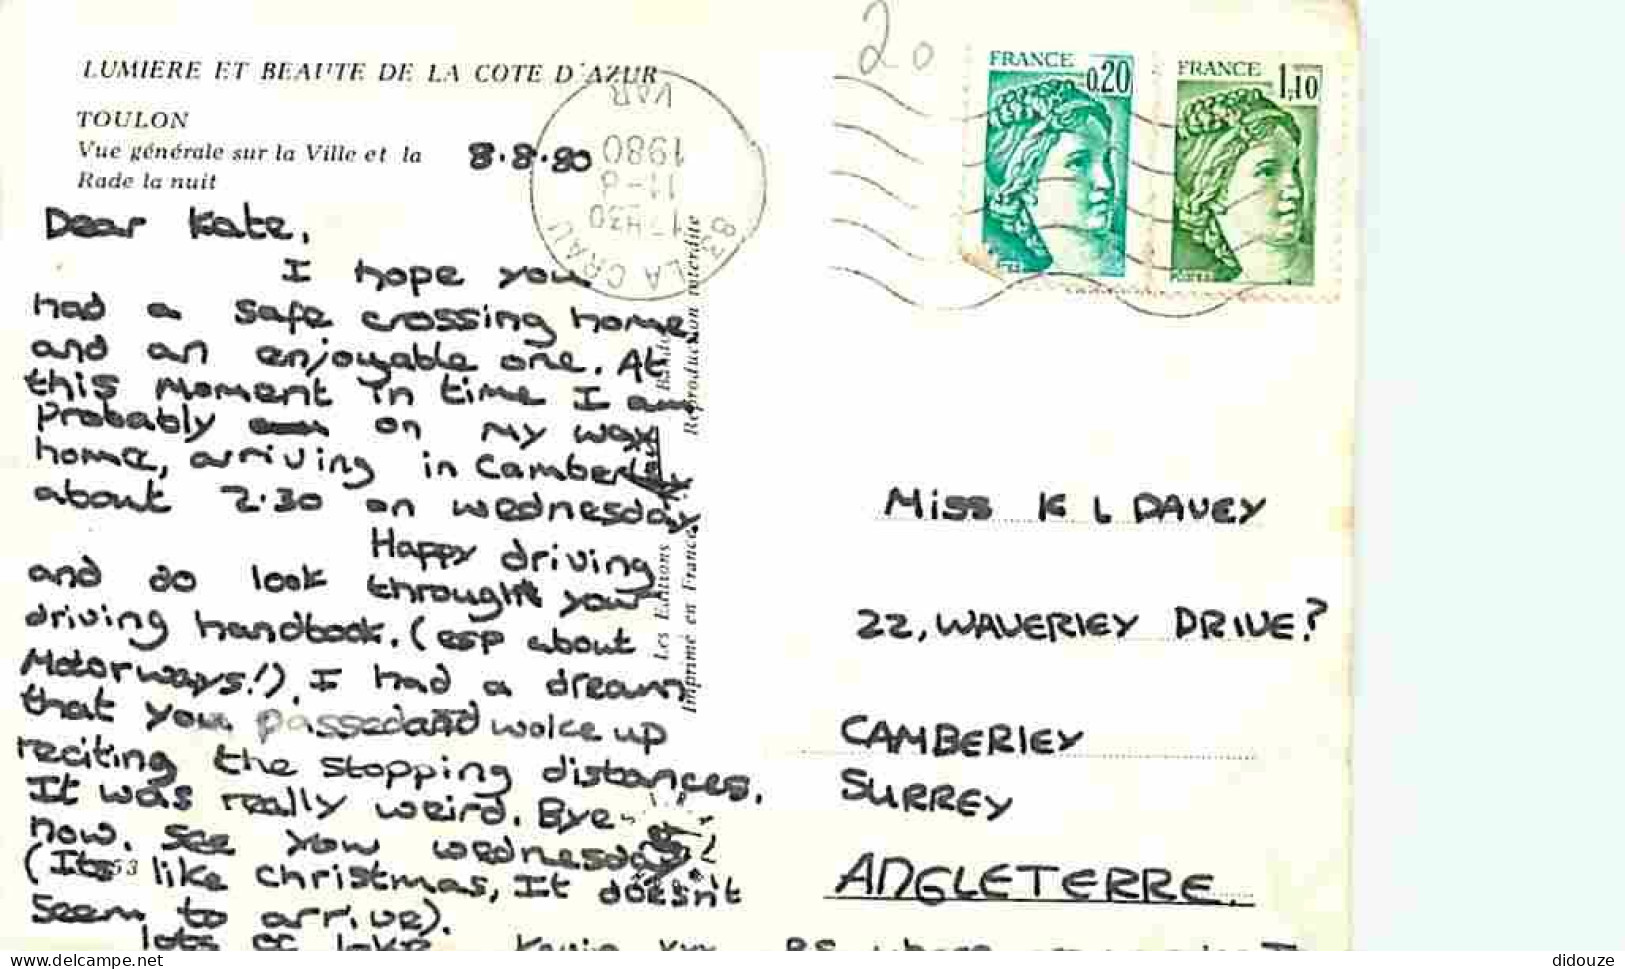 LUMIERE ET BEAUTE DE LA COTE D'AZUR
TOULON
Vue générale sur la Ville et la
Rade la nuit
8.8.80
Dear Kate,
I hope you
had a safe crossing home
and an enjoyable one. At
this moment in time I am
probably on my way
home, arriving in Camberley
about 2.30 on wednesday
Happy driving
and do look throught your
driving handbook. (esp about
Motorways!). I had a dream
that you passed and woke up
reciting the stopping distances.
It was really weird. Bye
now. see you wednesday
(Its like christmas, It doesn't
seem to arrive).
lots of love Kevin
PS
53
83 LA CRAU
17H30
11-8
1980
VAR
Les Editions
Imprimé en France
Reproduction interdite
20
FRANCE
0,20
FRANCE
1,10
Miss K L DAVEY
22, WAVERLEY DRIVE?
CAMBERLEY
SURREY
ANGLETERRE.
didouze